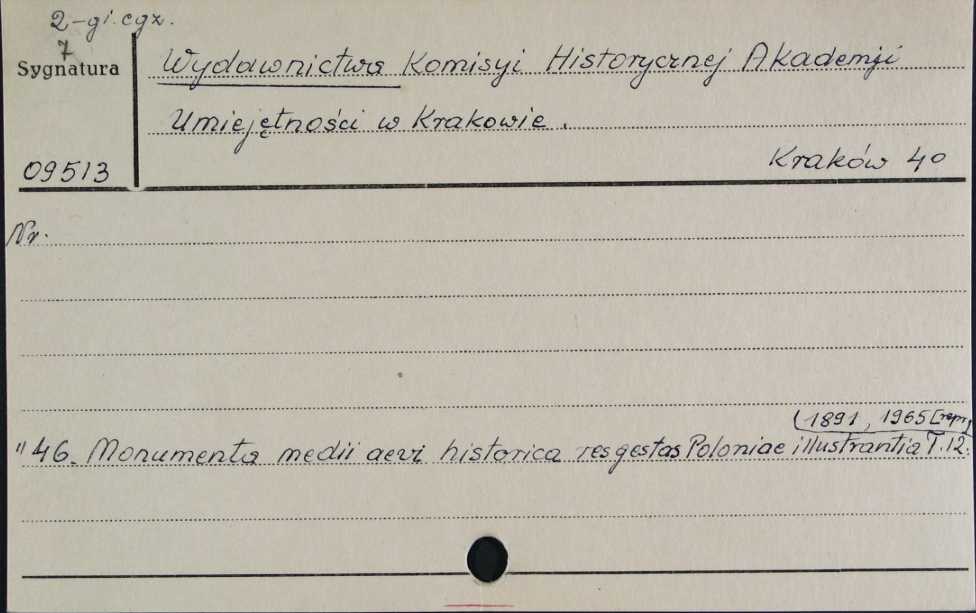 2-gi egz.
7
Sygnatura
Wydawnictwa Komisyi Historycznej Akademji
Umiejętności w Krakowie.
09513
Kraków 4º
Nr.
(1891, 1965 [repr]
" 46. Monumenta medii aevi historica res gestas Poloniae illustrantia T. 12.